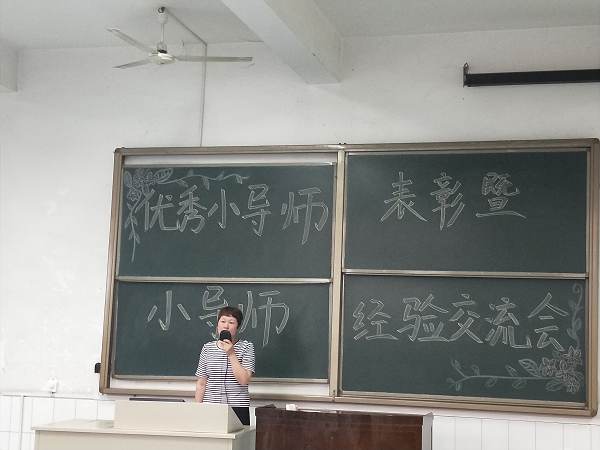 优秀小导师 表彰暨
小导师 经验交流会